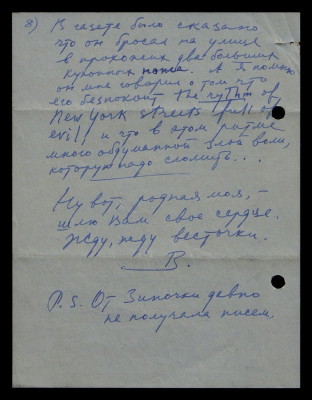 8) В газете было сказано
что он бросал на улице
в прохожих два больших
кухонных ножа. А я помню
он мне говорил о том что
его безпокоит the rythm of
New York streets (full of
evil) и что в этом ритме
много обдуманной злой воли,
которую надо сломить...
Ну вот, родная моя, –
шлю Вам свое сердце.
Жду, жду весточки.
В.
P.S. От Зиночки давно
не получала писем.